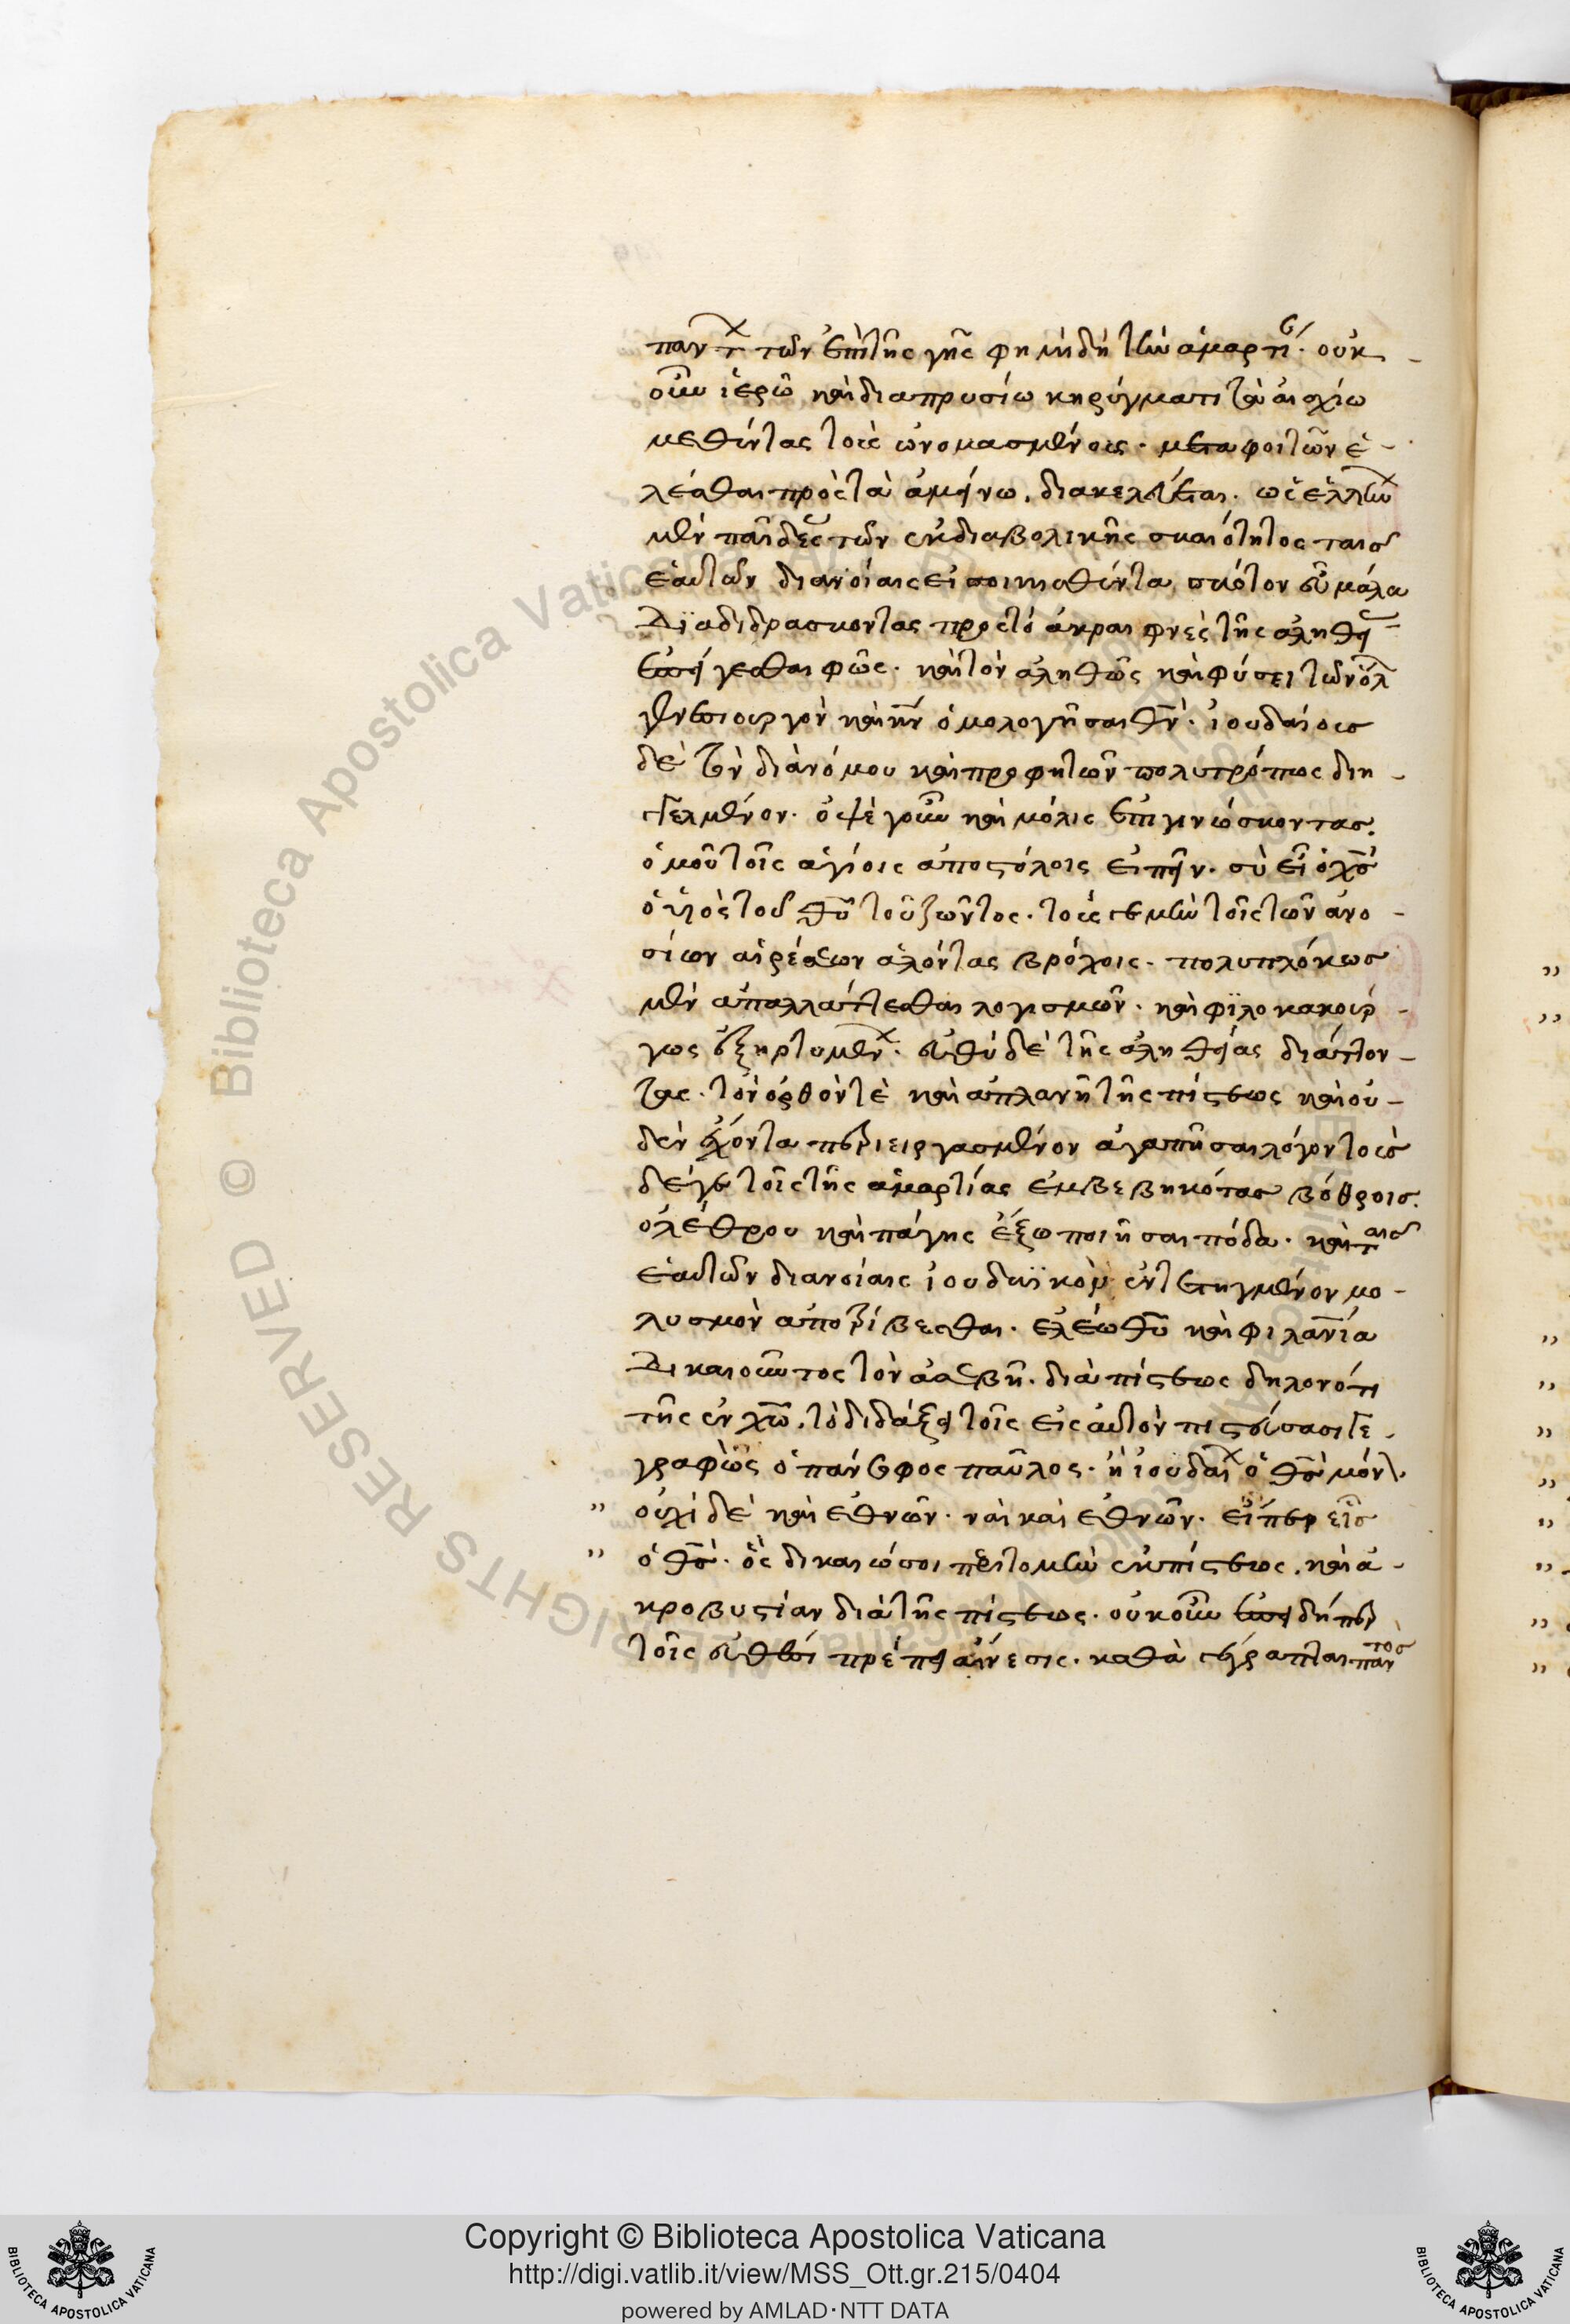 παντ τῶν ἐπὶ τῆς γῆς φημὶ δὴ τὴν ἁμαρτί. οὐκ-
οῦν ἱερῶ καὶ διαπρυσίω κηρύγματι τὰ αἰσχίω
μεθέντας τοὺς ὠνομασμένους. μεταφοιτῶν ἑ-
λέσθαι πρὸς τὰ ἀμείνω. διακελεύεται. ὡς ἑλλήν
μὲν παῖδες τῶν ἐκ διαβολικῆς σκαιότητος ταῖς
ἑαυτῶν διανοίαις εἰσοικισθέντα σκότον εὖ μάλα
διαδιδράσκοντας πρὸς τὸ ἀκραιφνὲς τῆς ἀληθεί
ἐπείγεσθαι φῶς. καὶ τὸν ἀληθῶς καὶ φύσει τῶν ὅλ
γενεσιουργὸν καὶ κν ὁμολογῆσαι θν. ἰουδαίους
δὲ τὸν διὰ νόμου καὶ προφητῶν πολυτρόπως διη-
γγελμένον. ὀψὲ γοῦν καὶ μόλις ἐπιγινώσκοντας.
ὁμοῦ τοῖς ἁγίοις ἀποστόλοις εἰπεῖν. σὺ εἶ ὁ χς
ὁ υἱὸς τοῦ θυ τοῦ ζῶντος. τούς γε μὴν τοῖς τῶν ἀνο-
σίων αἱρέσεων ἁλόντας βρόχοις. πολυπλόκως
μὲν ἀπαλλάττεσθαι λογισμῶν. καὶ φιλοκακούρ-
γως ἐξηρτυμέν. εὐθύ δὲ τῆς ἀληθείας διάττον-
τας. τὸν ὀρθόν τε καὶ ἀπλανῆ τῆς πίστεως καὶ οὐ-
δὲν ἔχοντα περιειργασμένον ἀγαπῆσαι λόγον τοὺς
δέ γε τοῖς τῆς ἁμαρτίας ἐμβεβηκότας βόθροις.
ὀλέθρου καὶ πάγης ἔξω ποιῆσαι πόδα. καὶ ταῖς
ἑαυτῶν διανοίαις ἰουδαϊκὸν ἐντετηγμένον μο-
λυσμὸν ἀποτρίβεσθαι. ἐλέω θυ καὶ φιλανία
δικαιοῦντος τὸν ἀσεβῆ. διὰ πίστεως δηλονότι
τῆς ἐν χω. τὸ διδάξει τοῖς εἰς αὐτὸν πιστεύσασι γε-
γραφὼς ὁ πάνσοφος παῦλος. ἢ ἰουδαί ὁ θς μόν.
” οὐχὶ δὲ καὶ ἐθνῶν. ναὶ καὶ ἐθνῶν. εἴπερ εἷς
” ὁ θς. ὃς δικαιώσοι περιτομὴν ἐκ πίστεως. καὶ ἀ-
κροβυστίαν διὰ τῆς πίστεως. οὐκοῦν ἐπειδήπερ
τοῖς εὐθέσι πρέπει αἴνεσις. καθὰ γέγραπται παντὸς
Copyright © Biblioteca Apostolica Vaticana
http://digi.vatlib.it/view/MSS_Ott.gr.215/0404
powered by AMLAD·NTT DATA